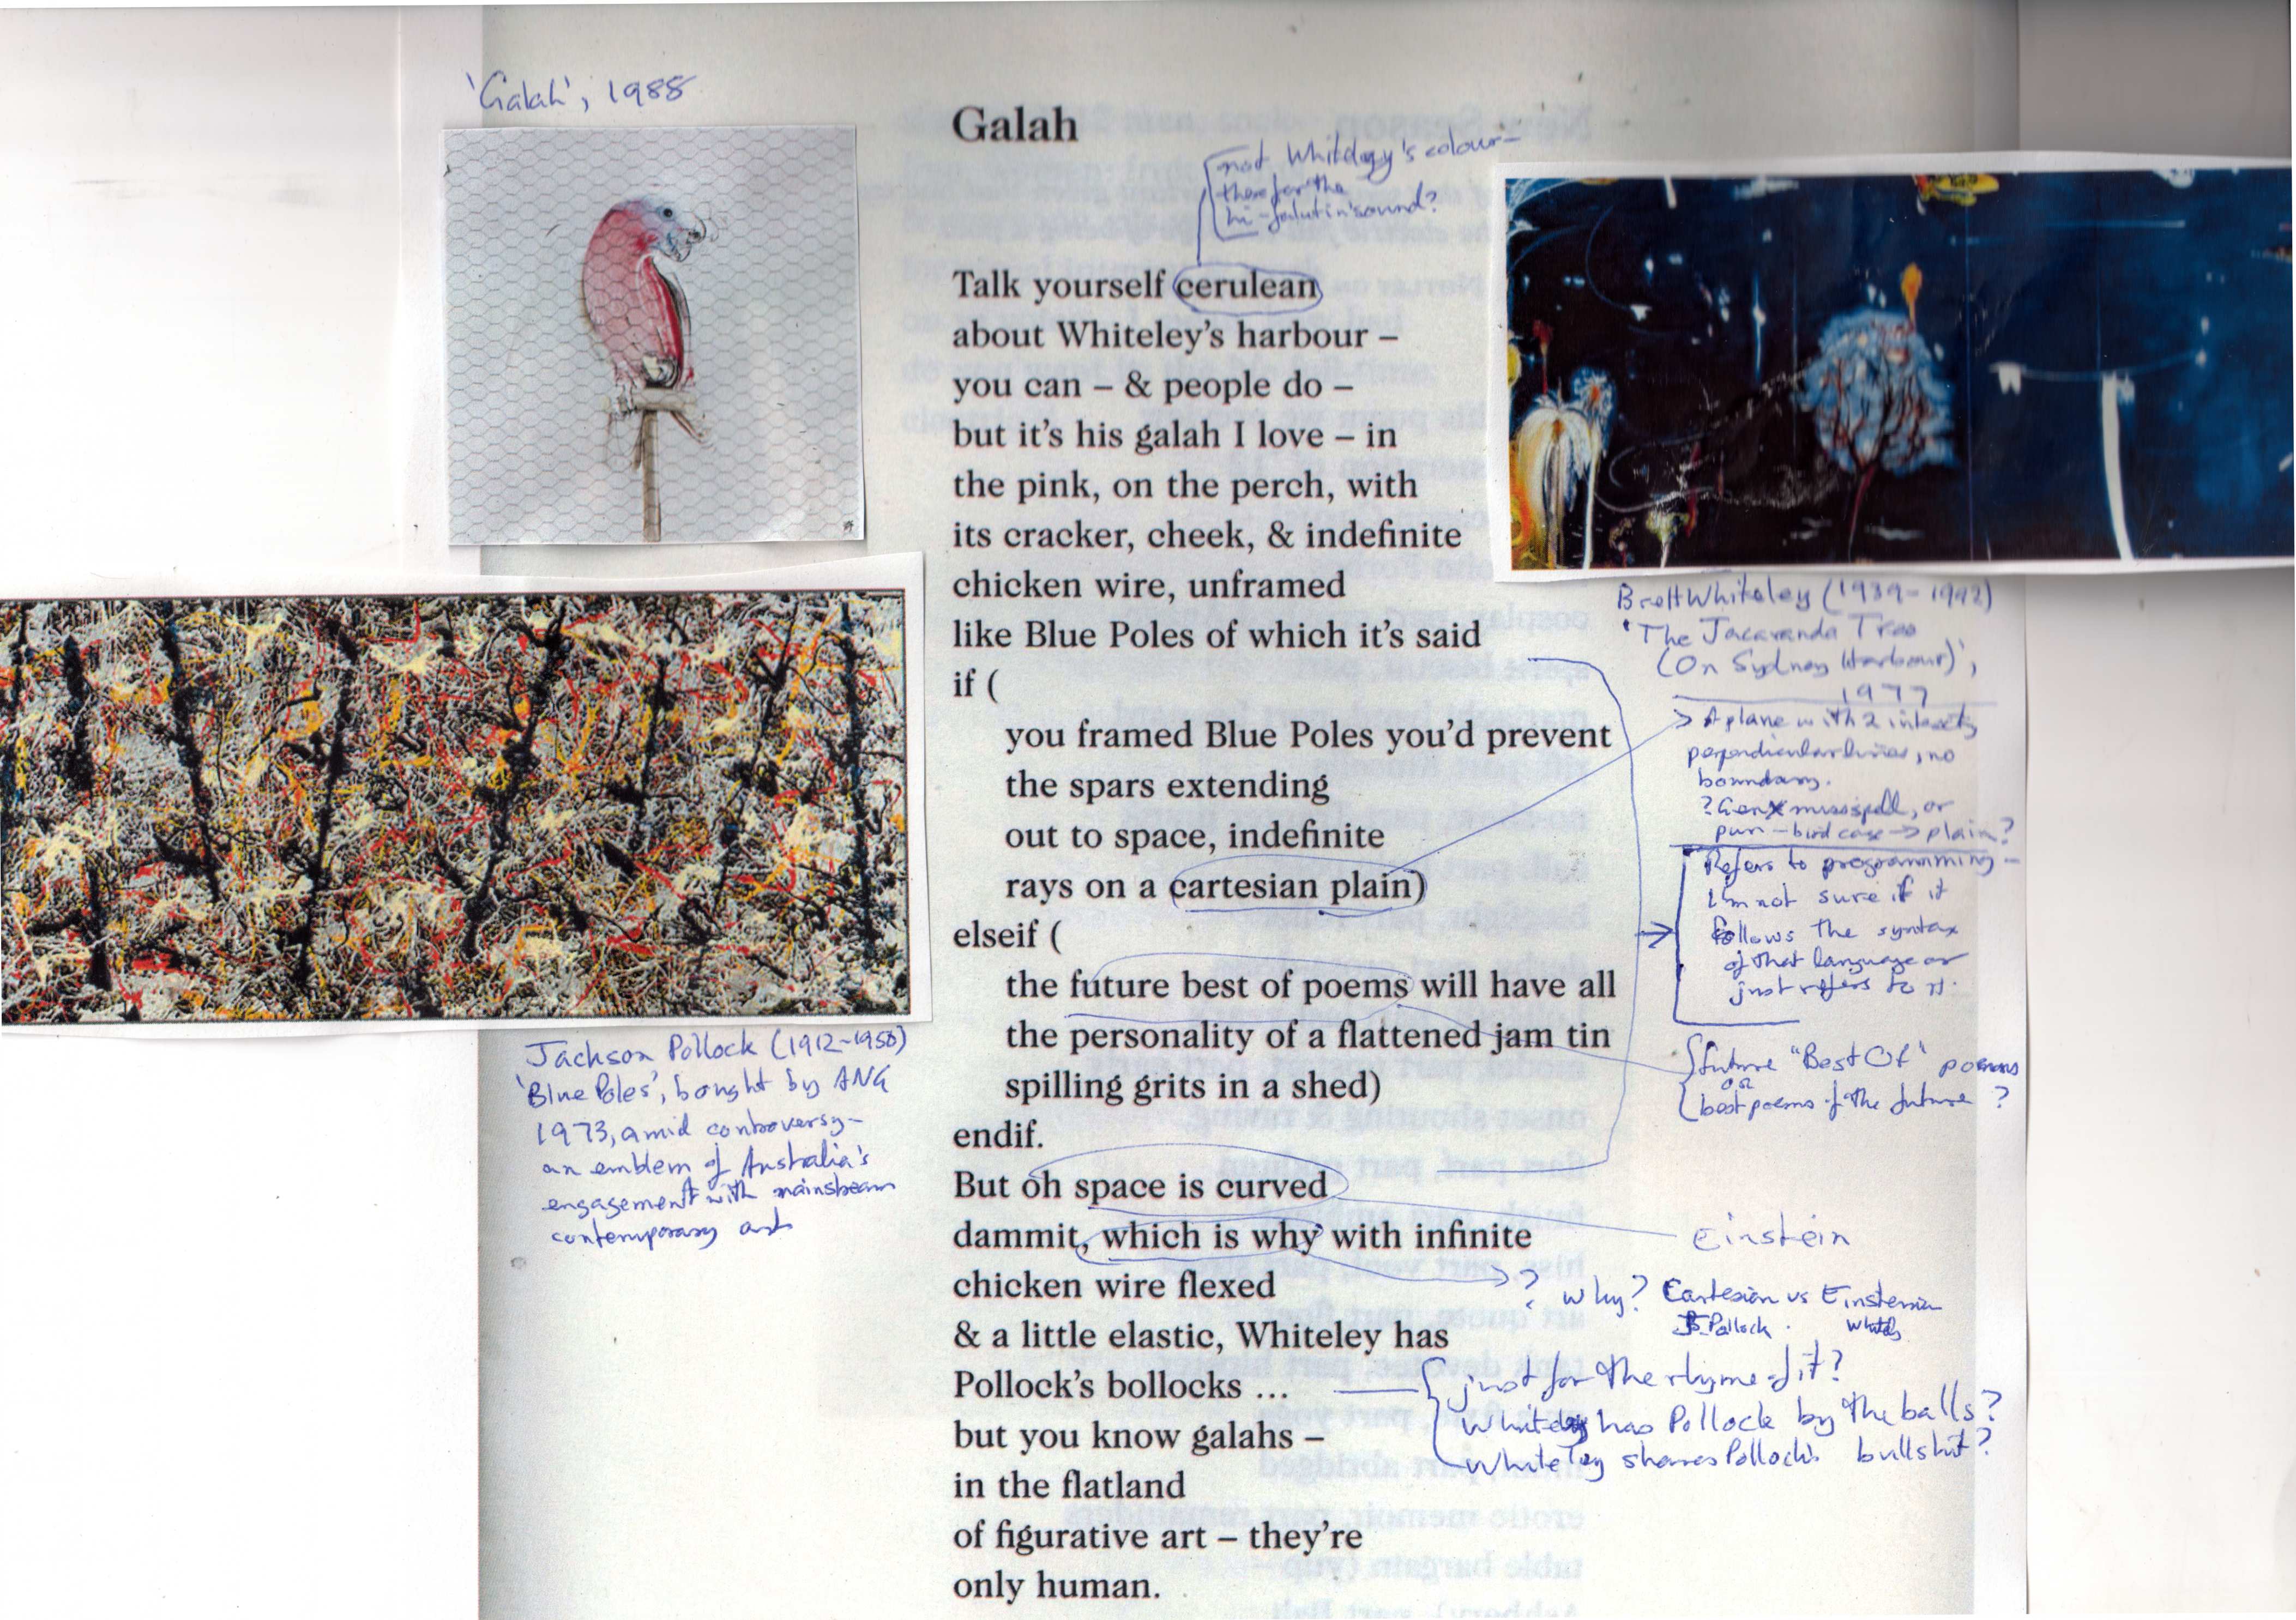 'Galah', 1988
Galah
not Whiteley's colour –
therefor the
hi-falutin' sound?
Talk yourself cerulean
about Whiteley's harbour –
you can – & people do –
but it's his galah I love – in
the pink, on the perch, with
its cracker, cheek, & indefinite
chicken wire, unframed
like Blue Poles of which it's said
if (
you framed Blue Poles you'd prevent
the spars extending
out to space, indefinite
rays on a cartesian plain)
elseif (
the future best of poems will have all
the personality of a flattened jam tin
spilling grits in a shed)
endif.
But oh space is curved
dammit, which is why with infinite
chicken wire flexed
& a little elastic, Whiteley has
Pollock's bollocks ...
but you know galahs –
in the flatland
of figurative art – they're
only human.
Jackson Pollock (1912-1956)
'Blue Poles', bought by ANG
1973, amid controversy –
an emblem of Australia's
engagement with mainstream
contemporary art
Brett Whiteley (1939-1992)
'The Jacaranda Tree
(On Sydney Harbour)',
1977
A plane with 2 intersecty
perpendicular lines, no
boundary.
? Gen X misspell, or
pun – bird cage → plain?
Refers to programming –
I'm not sure if it
follows the syntax
of that language or
just refers to it.
future "Best Of" poems
or
best poems of the future ?
Einstein
? why? Cartesian vs Einsteinian
Pollock . Whiteley
just for the rhyme of it?
Whiteley has Pollock by the balls?
Whiteley shares Pollock's bullshit?